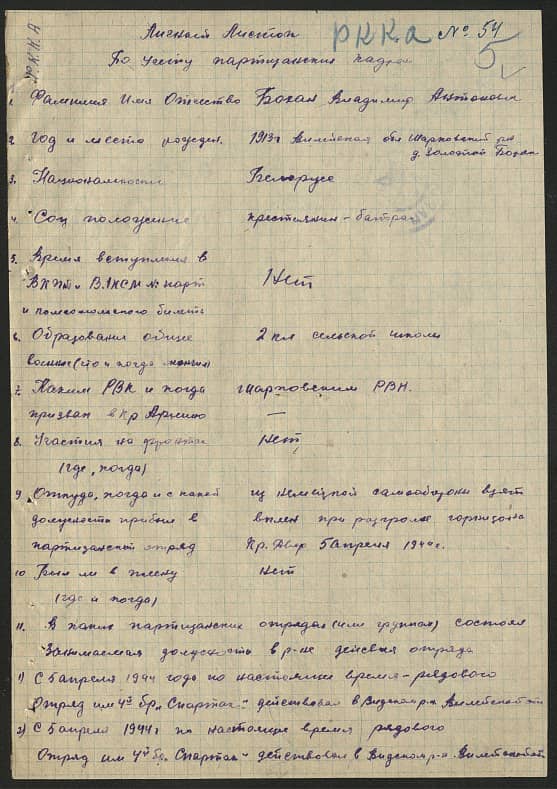 РККА
Личный Листок РККА № 54
По учету партизанских кадров 5
1. Фамилия Имя Отчество Бохан Владимир Антонович
2. Год и место рожден. 1913г Вилейская обл Шарковский р-н
д. Золотой Бохан
3. Национальность Белорус
4. Соц положение крестьянин - батрак
5. Время вступления в
ВКПб и ВЛКСМ № парт Нет
и комсомольского билета
6. Образование общее 2 кл сельской школы
военное (что и когда окончил)
7. Каким РВК и когда Шарковским РВК.
призван в Кр Армию —
8. Участия на фронтах Нет
(где, когда)
9. Откуда, когда и с какой из немецкой самообороны взят
должности прибыл в в плен при разгроме гарнизона
партизанский отряд Кр. Двор 5 апреля 1944г.
10. Был ли в плену Нет
(где и когда)
11. В каких партизанских отрядах (или группах) состоял
Занимаемая должность в р-не действия отряда
1) С 5 апреля 1944 года по настоящие время - рядового
Отряд им 4й бр. "Спартак" - действовал в Видском р-н Вилейской обл
2) С 5 апреля 1944г по настоящие время рядового
Отряд им 4й бр. Спартак - действовал в Видском р-н. Вилейской обл